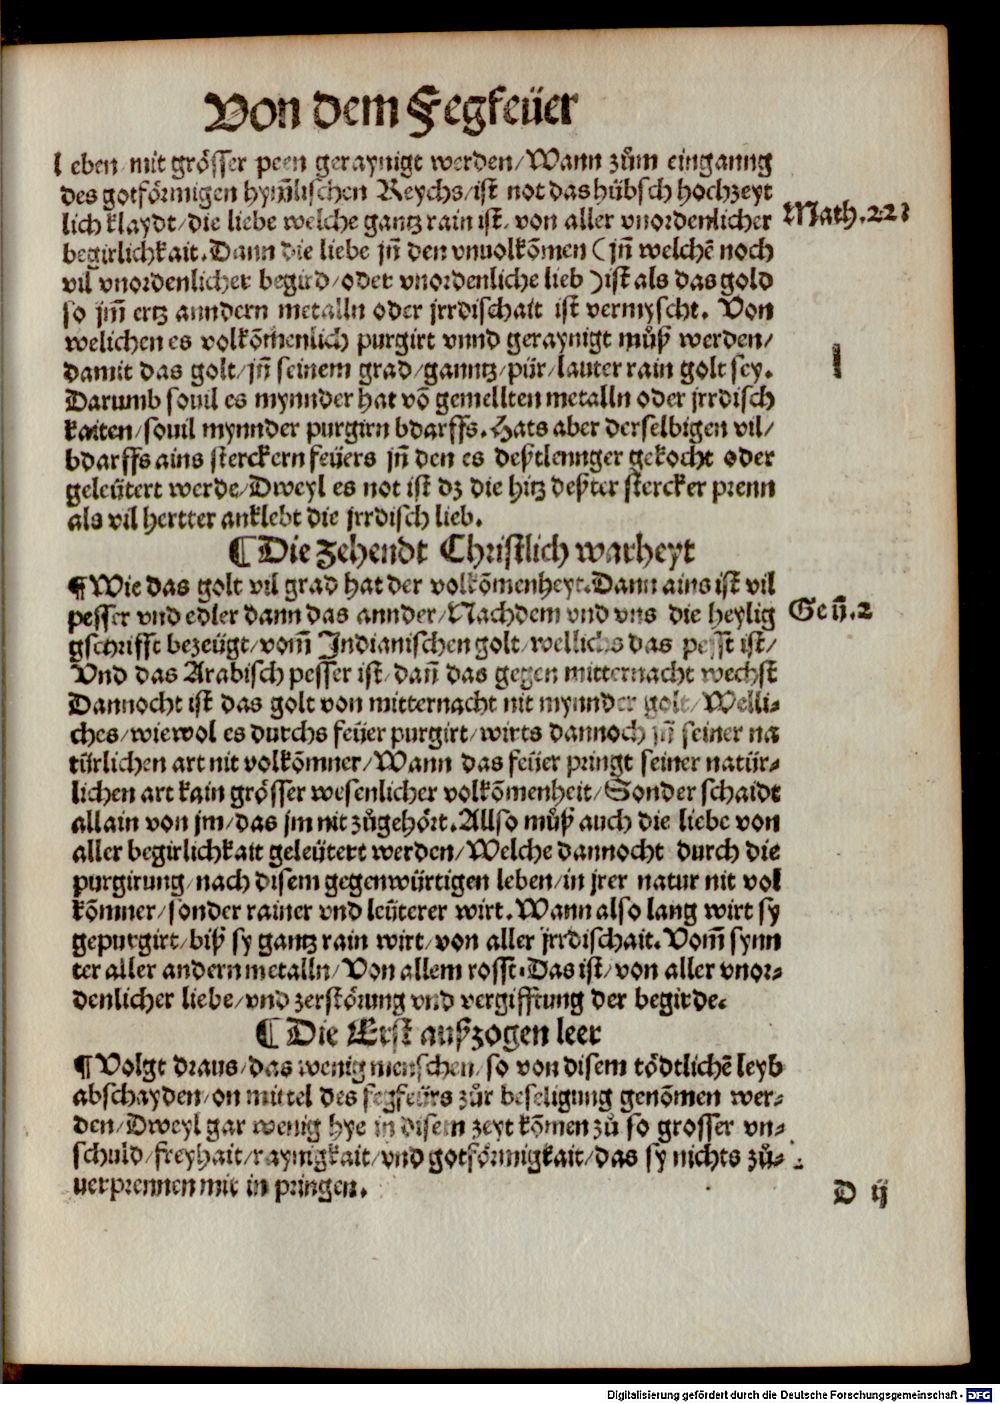 Von dem Fegfeüer
l eben/mit grösser peen geraynigt werden/Wann zům einganng
des gotförmigen hym̃lischen Reychs/ist not das hübsch hochzeyt
lich klaydt/die liebe welche gantz rain ist/von aller vnordenlicher
Math.22
begirlichkait.Dann die liebe jñ den vnuolkõmen (jñ welchẽ noch
vil vnordenlicher begird/oder vnordenliche lieb) ist als das gold
so jm̃ ertz anndern metalln oder jrrdischait ist vermyscht. Von
welichen es volkõmenlich purgirt vnnd geraynigt můß werden/
damit das golt/jñ seinem grad/ganntz/pür/lauter rain golt sey.
Darumb souil es mynnder hat võ gemellten metalln oder jrrdisch
kaiten/souil mynnder purgirn bdarffs.Hats aber derselbigen vil/
bdarffs ains sterckern feüers jñ den es deßtlennger gekocht oder
geleütert werde/Dweyl es not ist dz die hitz deßter stercker prenn
als vil hertter anklebt die jrrdisch lieb.
¶Die Zehendt Christlich warheyt
¶Wie das golt vil grad hat der volkõmenheyt.Dann ains ist vil
pesser vnd edler dann das annder/Nachdem vnd vns die heylig
Geñ.2
gschrifft bezeügt/vom̃ Indianischen golt/wellichs das pesst ist/
Vnd das Arabisch pesser ist/dañ das gegen mitternacht wechst
Dannocht ist das golt von mitternacht nit mynnder golt/Welli-
ches/wiewol es durchs feüer purgirt/wirts dannoch jñ seiner na
türlichen art nit volkõmner/Wann das feüer pringt seiner natür-
lichen art kain grösser wesenlicher volkõmenheit/Sonder schaidt
allain von jm/das jm nit zůgehört.Allso můß auch die liebe von
aller begirlichkait geleütert werden/Welche dannocht durch die
purgirung/nach disem gegenwürtigen leben/in jrer natur nit vol
kõmner/sonder rainer vnd leüterer wirt.Wann also lang wirt sy
gepurgirt/biß sy gantz rain wirt/von aller jrrdischait.Vom̃ synn
ter aller andern metalln/Von allem rosst.Das ist/von aller vnor-
denlicher liebe/vnd zerstörung vnd vergifftung der begirde.
¶Die Erst außzogen leer
¶Volgt draus/das wenig menschen/so von disem tödtlichẽ leyb
abschayden/on mittel des fegfeürs zůr beseligung genõmen wer-
den/Dweyl gar wenig hye in disem zeyt kõmen zů so grosser vn-
schuld/freyhait/raynigkait/vnd gotförmigkait/das sy nichts zů-
uerprennen mit in pringen.
D ij
Digitalisierung gefördert durch die Deutsche Forschungsgemeinschaft - DFG